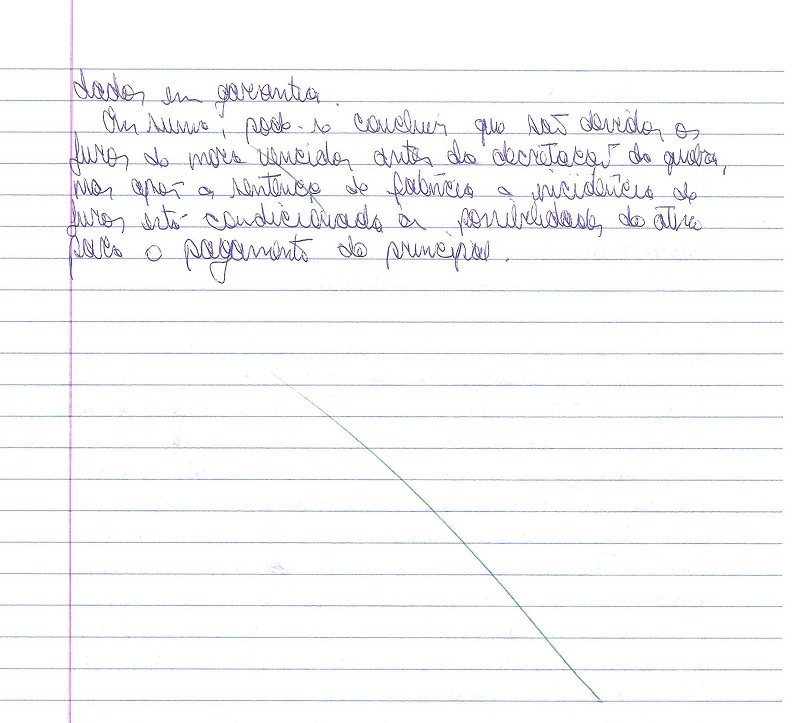 dados em garantia.
Em suma, pode-se concluir que são devidos os
juros de mora vencidos antes da decretação da quebra,
mas após a sentença de falência a incidência de
juros está condicionada as possibilidades do ativo
para o pagamento do principal.